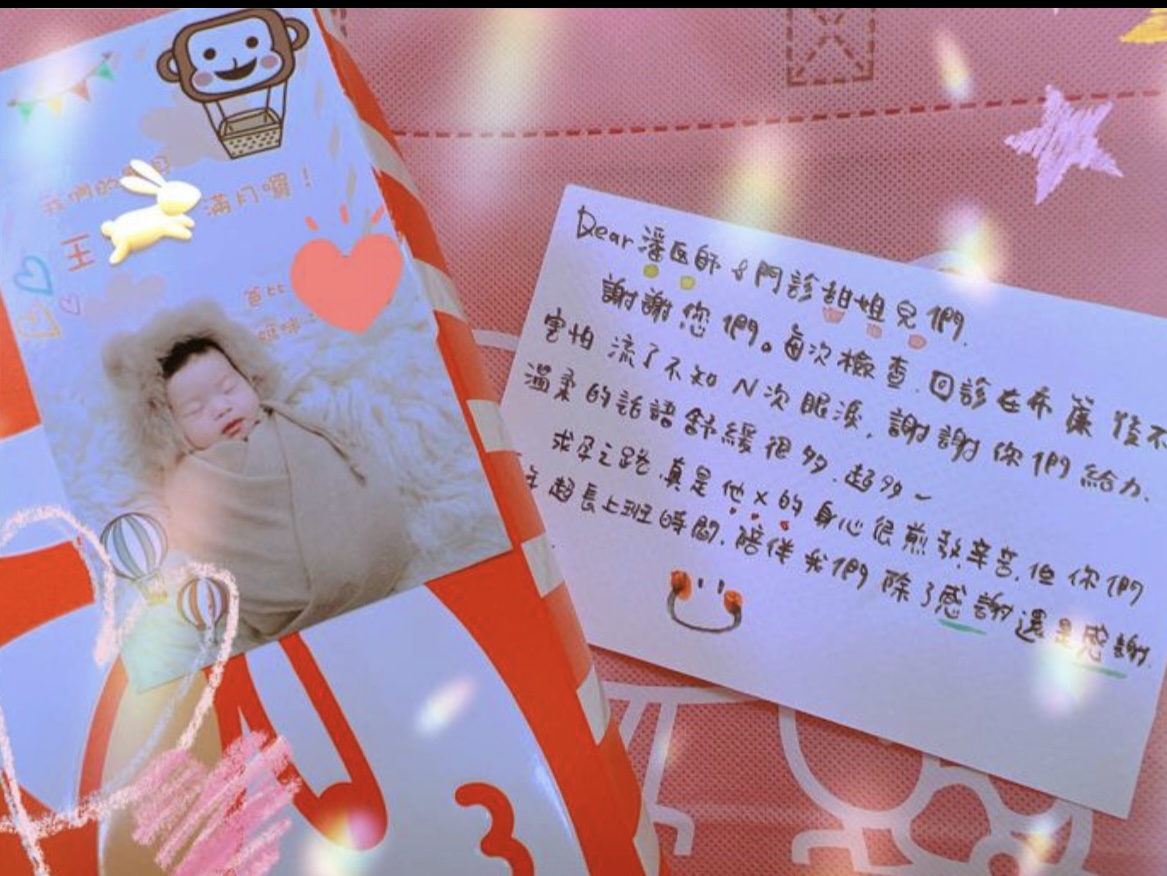 我們的寶貝
滿月囉！
王
爸比
媽咪
Dear 潘医師 & 門診甜姐兒們.
謝謝您們。每次檢查.回診在布簾後不
害怕 流了不知N次眼淚,謝謝你們給力.
溫柔的話語舒緩很多.超多~
求孕之路真是他×的身心很煎熬辛苦,但你們
年超長上班時間,陪伴我們除了感謝還是感謝.
3